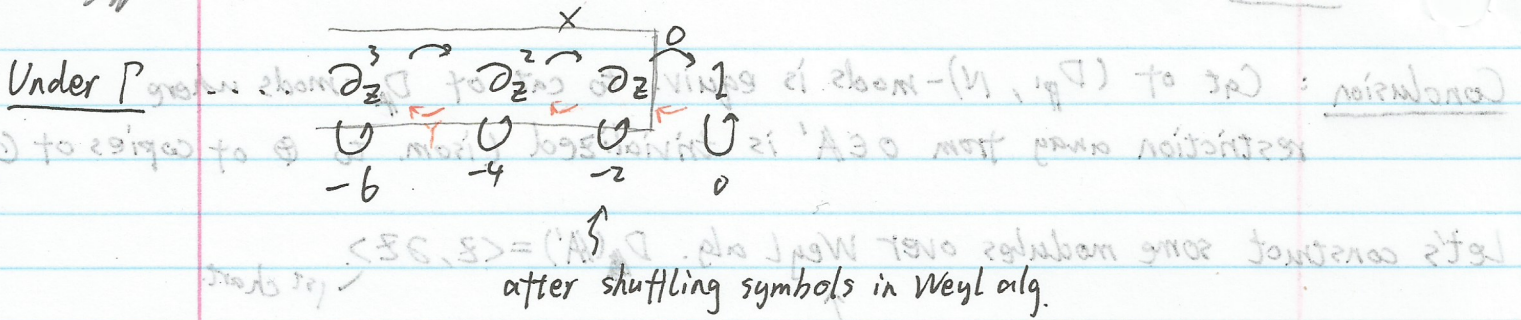 X
0
Under Γ ∂z³ ∂z² ∂z 1
Y
-6 -4 -2 0
after shuffling symbols in Weyl alg.